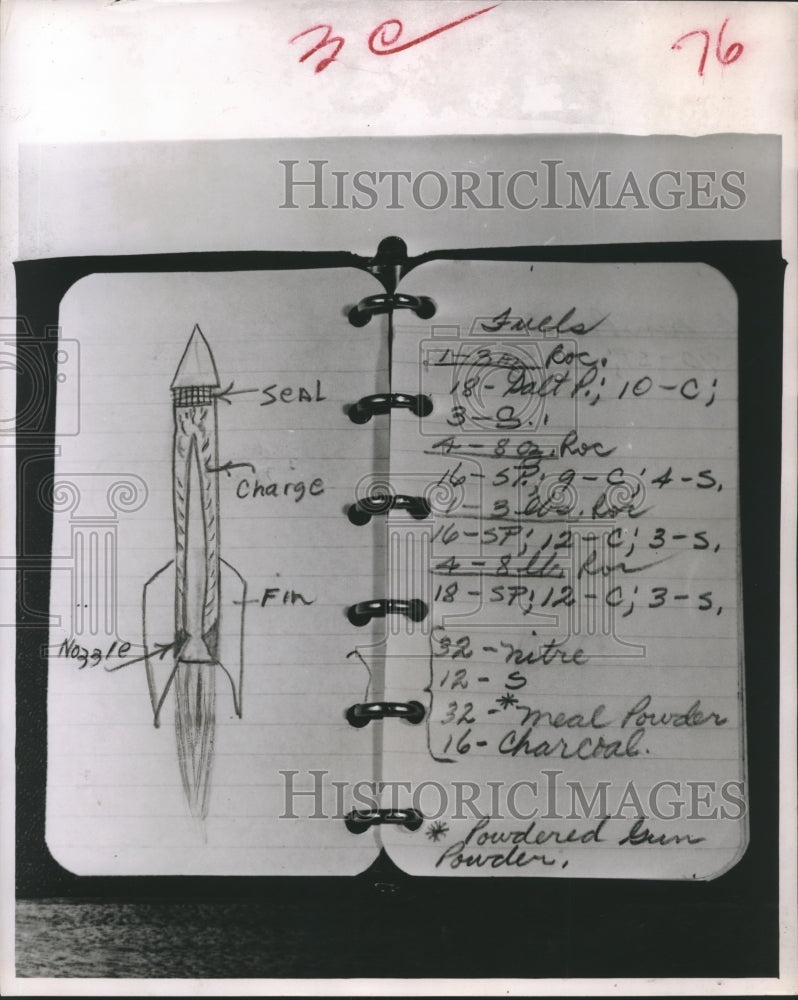 3 C
76
HISTORIC IMAGES
Seal
Charge
Fin
Nozzle
Fuels
1-3 oz. Roc.
18-Salt P.; 10-C;
3-S.;
4-8 oz. Roc
16-SP.; 9-C; 4-S.
1-3 lbs. Roc
16-SP; 12-C; 3-S.
4-8 lb. Roc
18-SP; 12-C; 3-S.
32-nitre
12-S
32-*meal Powder
16-Charcoal.
HISTORIC IMAGES
* Powdered Gun
Powder.